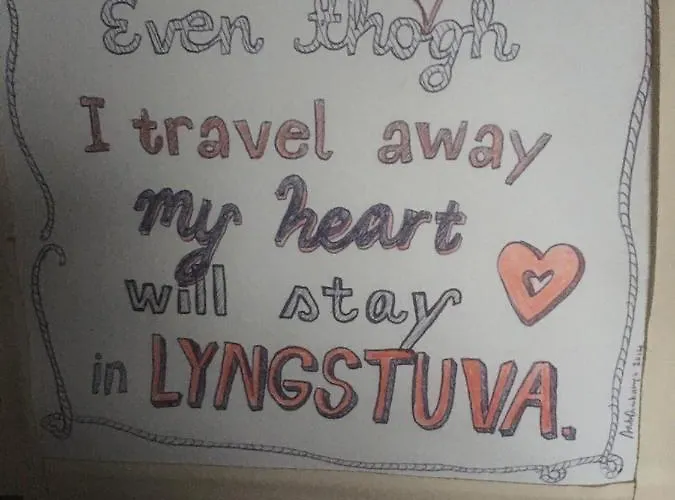 Even thogh
I travel away
my heart
will stay
in LYNGSTUVA.